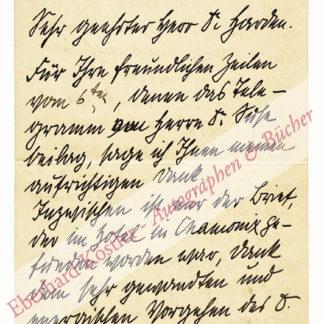 Sehr geehrter Herr Dr. Harden.
Für Ihre freundlichen Zeilen
vom 6ten, denen das Tele-
gramm von Herrn Dr. Suse
beilag, sage ich Ihnen meinen
aufrichtigen Dank.
Inzwischen ist mir der Brief,
der im Hotel in Chamonix ge-
funden worden war, dank
dem sehr gewandten und
energischen Vorgehen des D.
Eberhard Köstler Autographen & Bücher